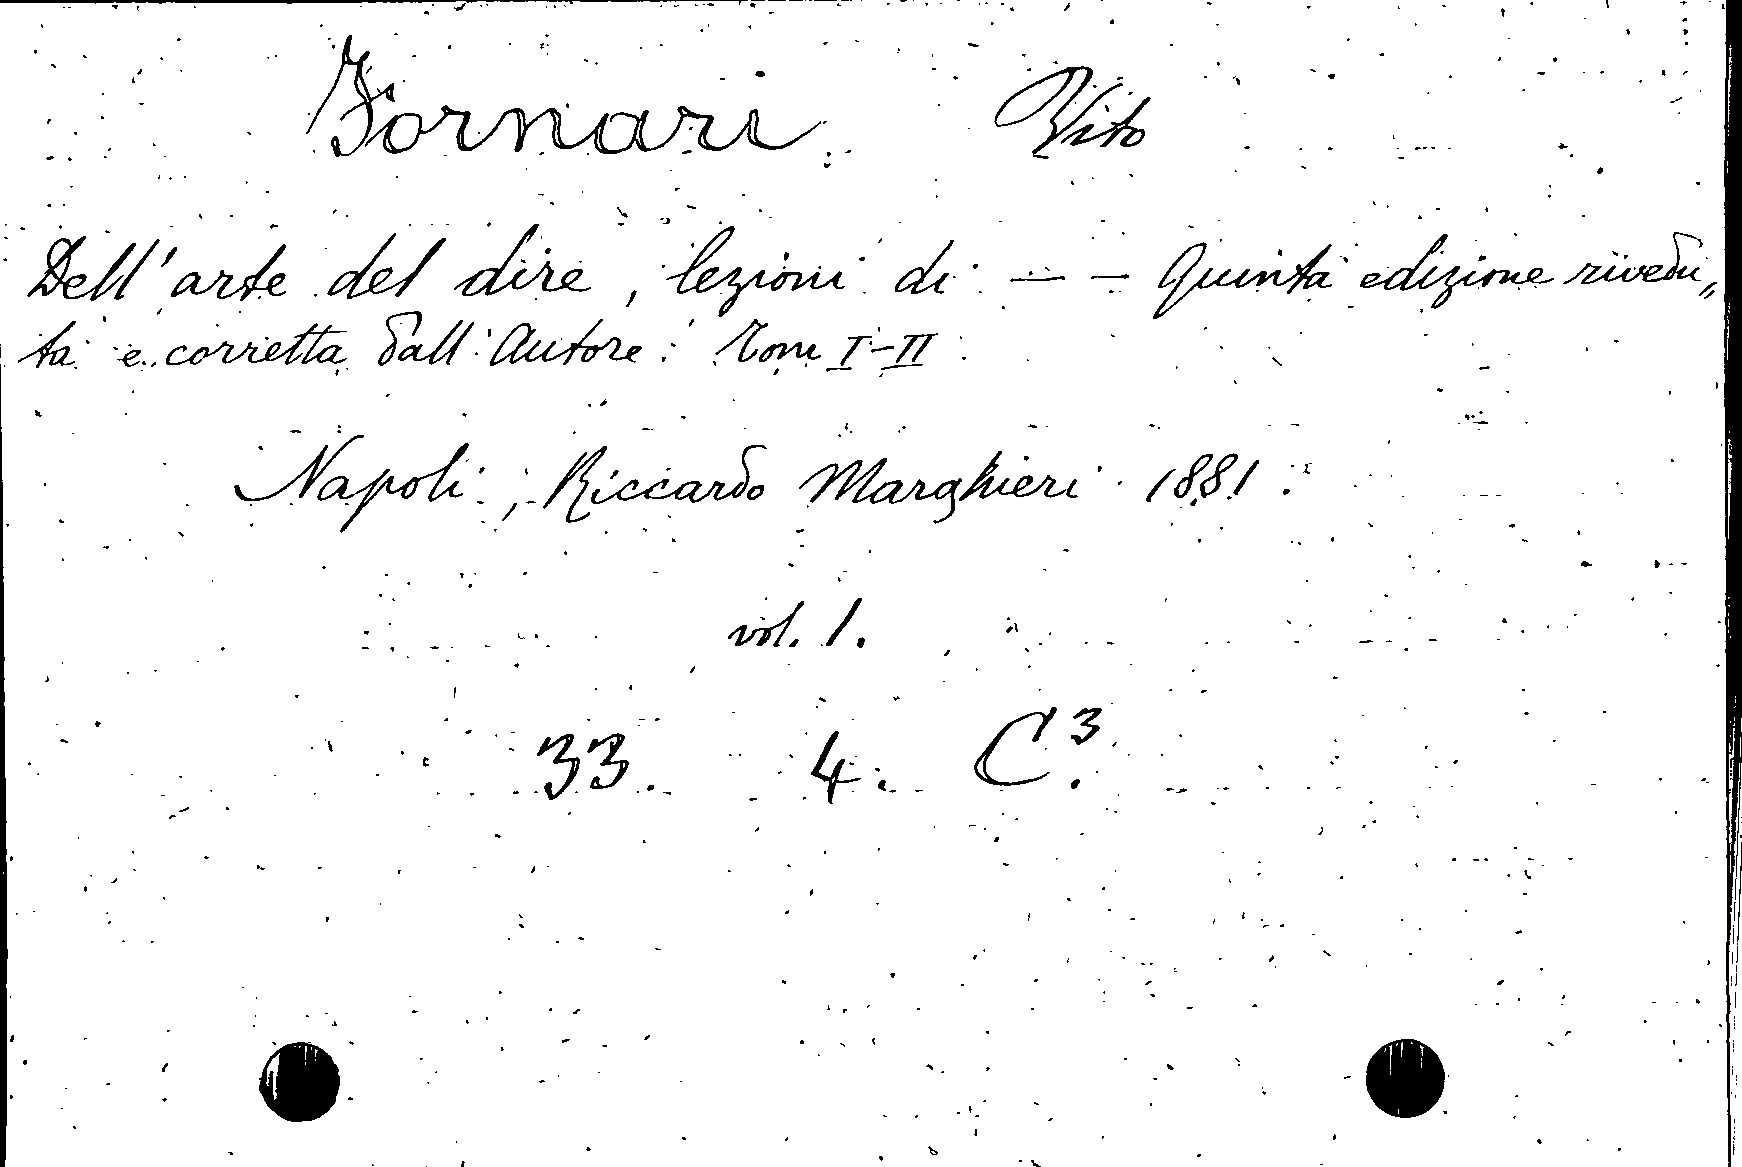 Fornari Vito
Dell'arte del dire, lezioni di — — Quinta edizione rivedu„
ta e corretta dall'Autore. Tomi I-II
Napoli, Riccardo Marghieri 1881.
vol. 1.
33. 4. C³.